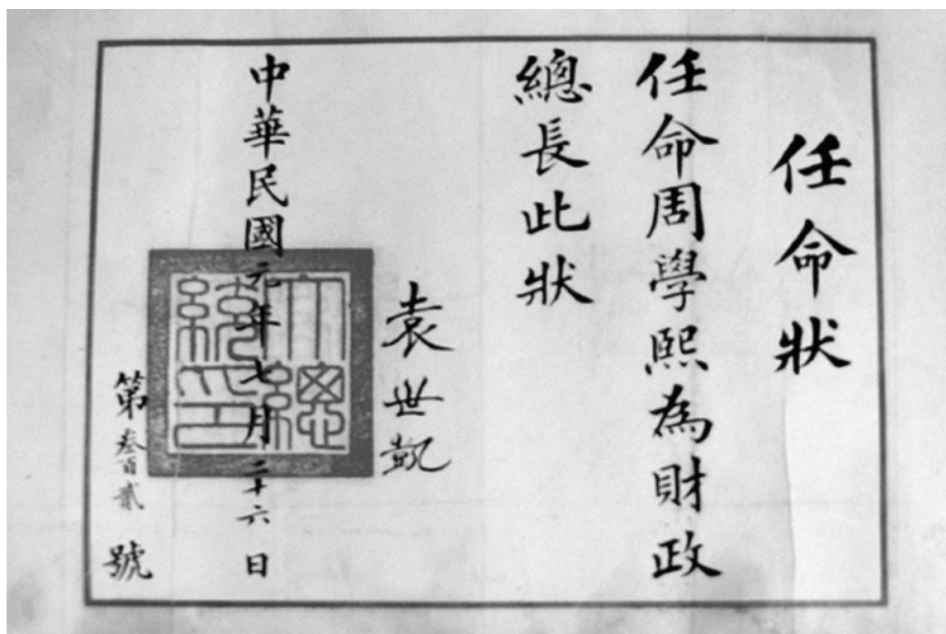 任命狀
任命周學熙為財政
總長此狀
袁世凱
中華民國元年七月二十六日
第叁百貳號
大總統印